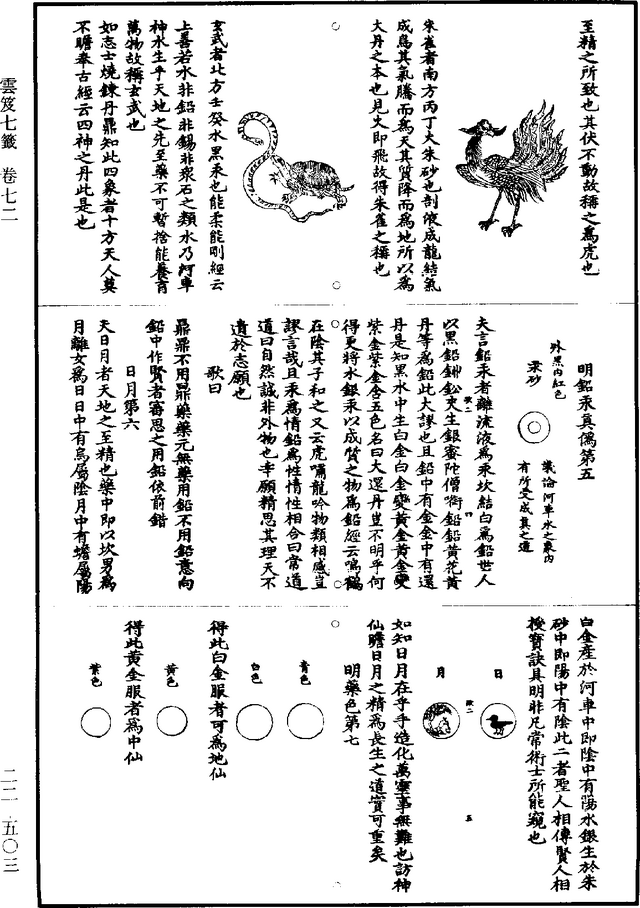 雲笈七籤　卷七二
至精之所致也其伏不動故稱之為虎也
朱雀者南方丙丁火朱砂也剖液成龍結氣
成鳥其氣騰而為天其質降而為地所以為
大丹之本也見火即飛故得朱雀之稱也
玄武者北方壬癸水黑汞也能柔能剛經云
上善若水非鉛非錫非衆石之類水乃河車
神水生乎天地之先至藥不可暫捨能養育
萬物故稱玄武也
如志士燒鍊丹鼎知此四象者十方天人莫
不瞻奉古經云四神之丹此是也
明鉛汞真偽第五
外黑内紅色
汞砂
議論河車水之象内
有所受成真之道
夫言鉛汞者離流液為汞坎結白為鉛世人
以黑鉛鉮鈆吏生銀蜜陀僧啣鉛鉛黃花黃
丹等為鉛此大謬也且鉛中有金金中有還
丹是知黑水中生白金白金變黃金黃金變
紫金紫金含五色名曰大還丹豈不明乎何
得更將水銀汞以成質之物為鉛經云鳴鶴
在陰其子和之又云虎嘯龍吟物類相感豈
謬言哉且汞為情鉛為性情性相合曰常道
道曰自然誠非外物也幸願精思其理天不
遺於志願也
歌曰
鼎鼎不用鼎藥藥元無藥用鉛不用鉛意向
鉛中作賢者審思之用鉛依前錯
日月第六
夫日月者天地之至精也藥中即以坎男為
月離女為日日中有烏屬陰月中有蟾屬陽
白金產於河車中即陰中有陽水銀生於朱
砂中即陽中有陰此二者聖人相傳賢人相
授寶訣具明非凡常術士所能窺也
日
月
如知日月在乎手造化萬靈事無難也訪神
仙瞻日月之精為長生之道實可重矣
明藥色第七
青色
白色
得此白金服者可為地仙
黃色
得此黃金服者為中仙
紫色
二二－五〇三